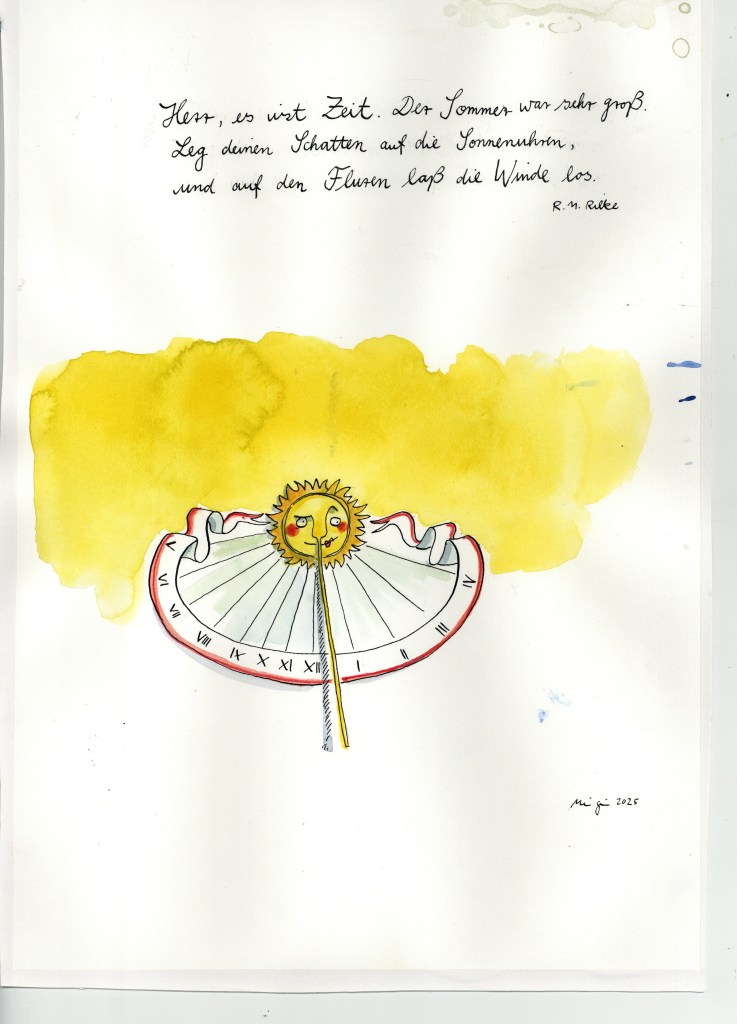 Herr, es ist Zeit. Der Sommer war sehr groß.
Leg deinen Schatten auf die Sonnenuhren,
und auf den Fluren laß die Winde los.
R. M. Rilke
V VI VII VIII IX X XI XII I II III IV
2025